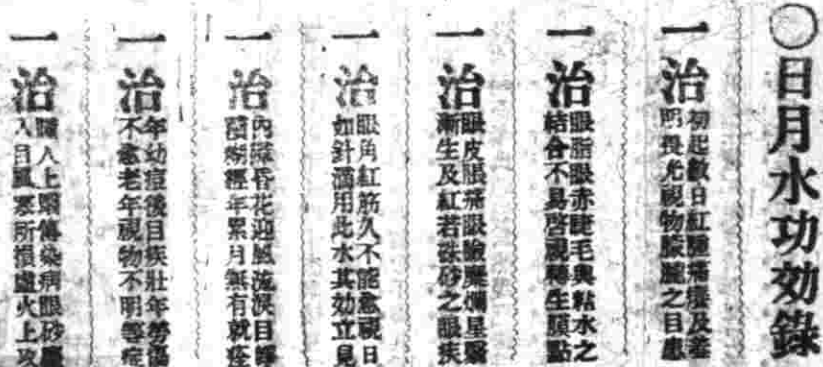 〇日月水功効錄
一治初起數日紅腫痛癢及羞
明畏光視物朦朧之目患
一治眼脂眼赤睫毛與粘水之
結合不易啓視轉生膜點
一治眼皮眼痛眼瞼糜爛星翳
漸生及紅若硃砂之眼疾
一治眼角紅筋久不能愈視日
如針濇用此水其効立見
一治內障昏花迎風流淚目
糊經年累月無有就痊
一治年幼痘後目疾壯年勞傷
不愈老年視物不明等症
一治人上眼傳染病眼砂
入目風寒所損虛火上攻